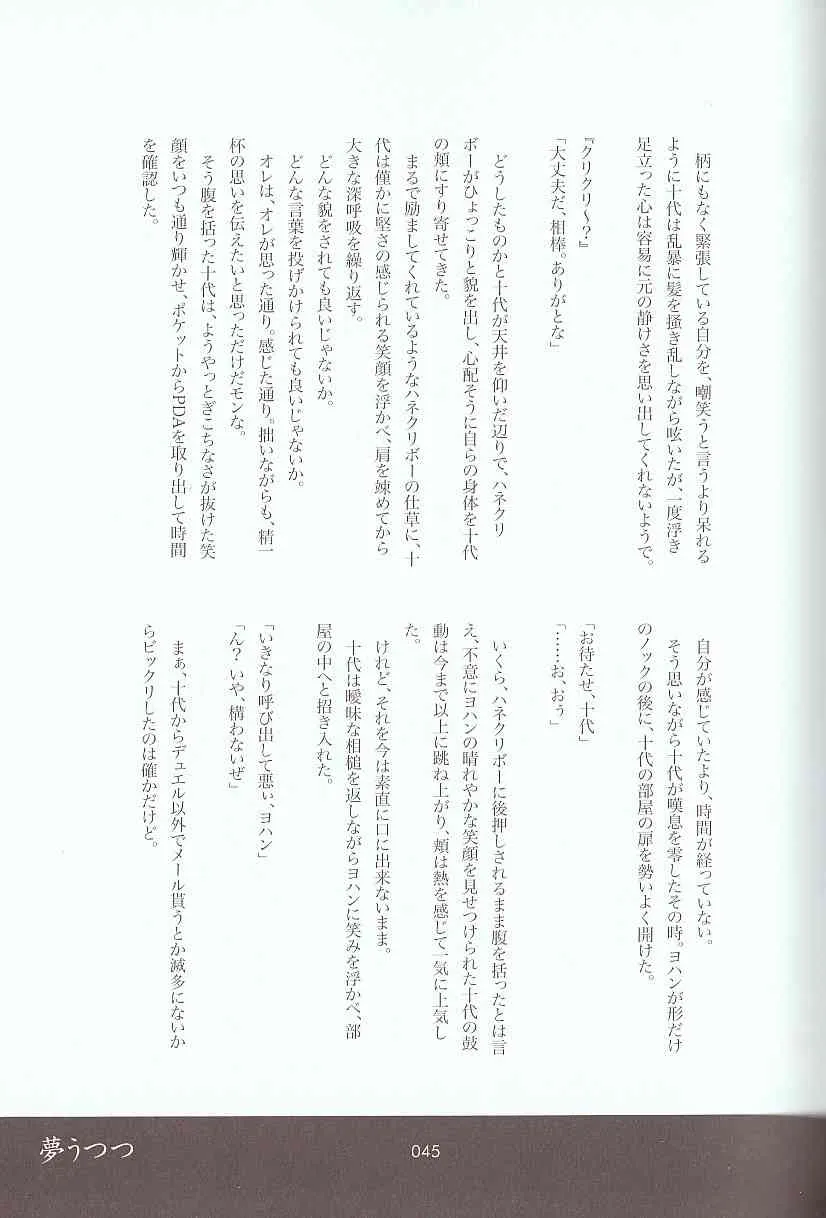 柄にもなく緊張している自分を、嘲笑うと言うより呆れる
ように十代は乱暴に髪を掻き乱しながら呟いたが、一度浮き
足立った心は容易に元の静けさを思い出してくれないようで。
『クリクリ~?』
「大丈夫だ、相棒。ありがとな」
どうしたものかと十代が天井を仰いだ辺りで、ハネクリ
ボーがひょっこりと貌を出し、心配そうに自らの身体を十代
の頬にすり寄せてきた。
まるで励ましてくれているようなハネクリボーの仕草に、十
代は僅かに堅さの感じられる笑顔を浮かべ、肩を竦めてから
大きな深呼吸を繰り返す。
どんな貌をされても良いじゃないか。
どんな言葉を投げかけられても良いじゃないか。
オレは、オレが思った通り。感じた通り。拙いながらも、精一
杯の思いを伝えたいと思っただけだモンな。
そう腹を括った十代は、ようやっとぎこちなさが抜けた笑
顔をいつも通り輝かせ、ポケットからPDAを取り出して時間
を確認した。
自分が感じていたより、時間が経っていない。
そう思いながら十代が嘆息を零したその時。ヨハンが形だけ
のノックの後に、十代の部屋の扉を勢いよく開けた。
「お待たせ、十代」
「……お、おう」
いくら、ハネクリボーに後押しされるまま腹を括ったとは言
え、不意にヨハンの晴れやかな笑顔を見せつけられた十代の鼓
動は今まで以上に跳ね上がり、頬は熱を感じて一気に上気し
た。
けれど、それを今は素直に口に出来ないまま。
十代は曖昧な相槌を返しながらヨハンに笑みを浮かべ、部
屋の中へと招き入れた。
「いきなり呼び出して悪ぃ、ヨハン」
「ん? いや、構わないぜ」
まぁ、十代からデュエル以外でメール貰うとか滅多にないか
らビックリしたのは確かだけど。
夢うつつ
045